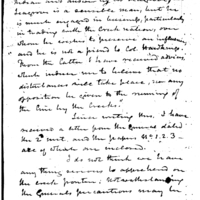 Seagrove is a sensible man, but he
is much engaged in business, particularly
in trading with the Creek nation, over
whom he wishes to preserve an influence
and he is not a friend to Col. Hawkins.
From the latter I have received advices
which induce me to believe that no
disturbances will take place, nor any
opposition be given to the running of
the line by the Creeks."
Since writing this, I have
received a letter from the General dated
the 2d inst. and the papers No. 1. 2. 3.
all of which are enclosed.
I do not think we have
any thing serious to apprehend on
the Creek frontier; notwithstanding
the General's precautions may be